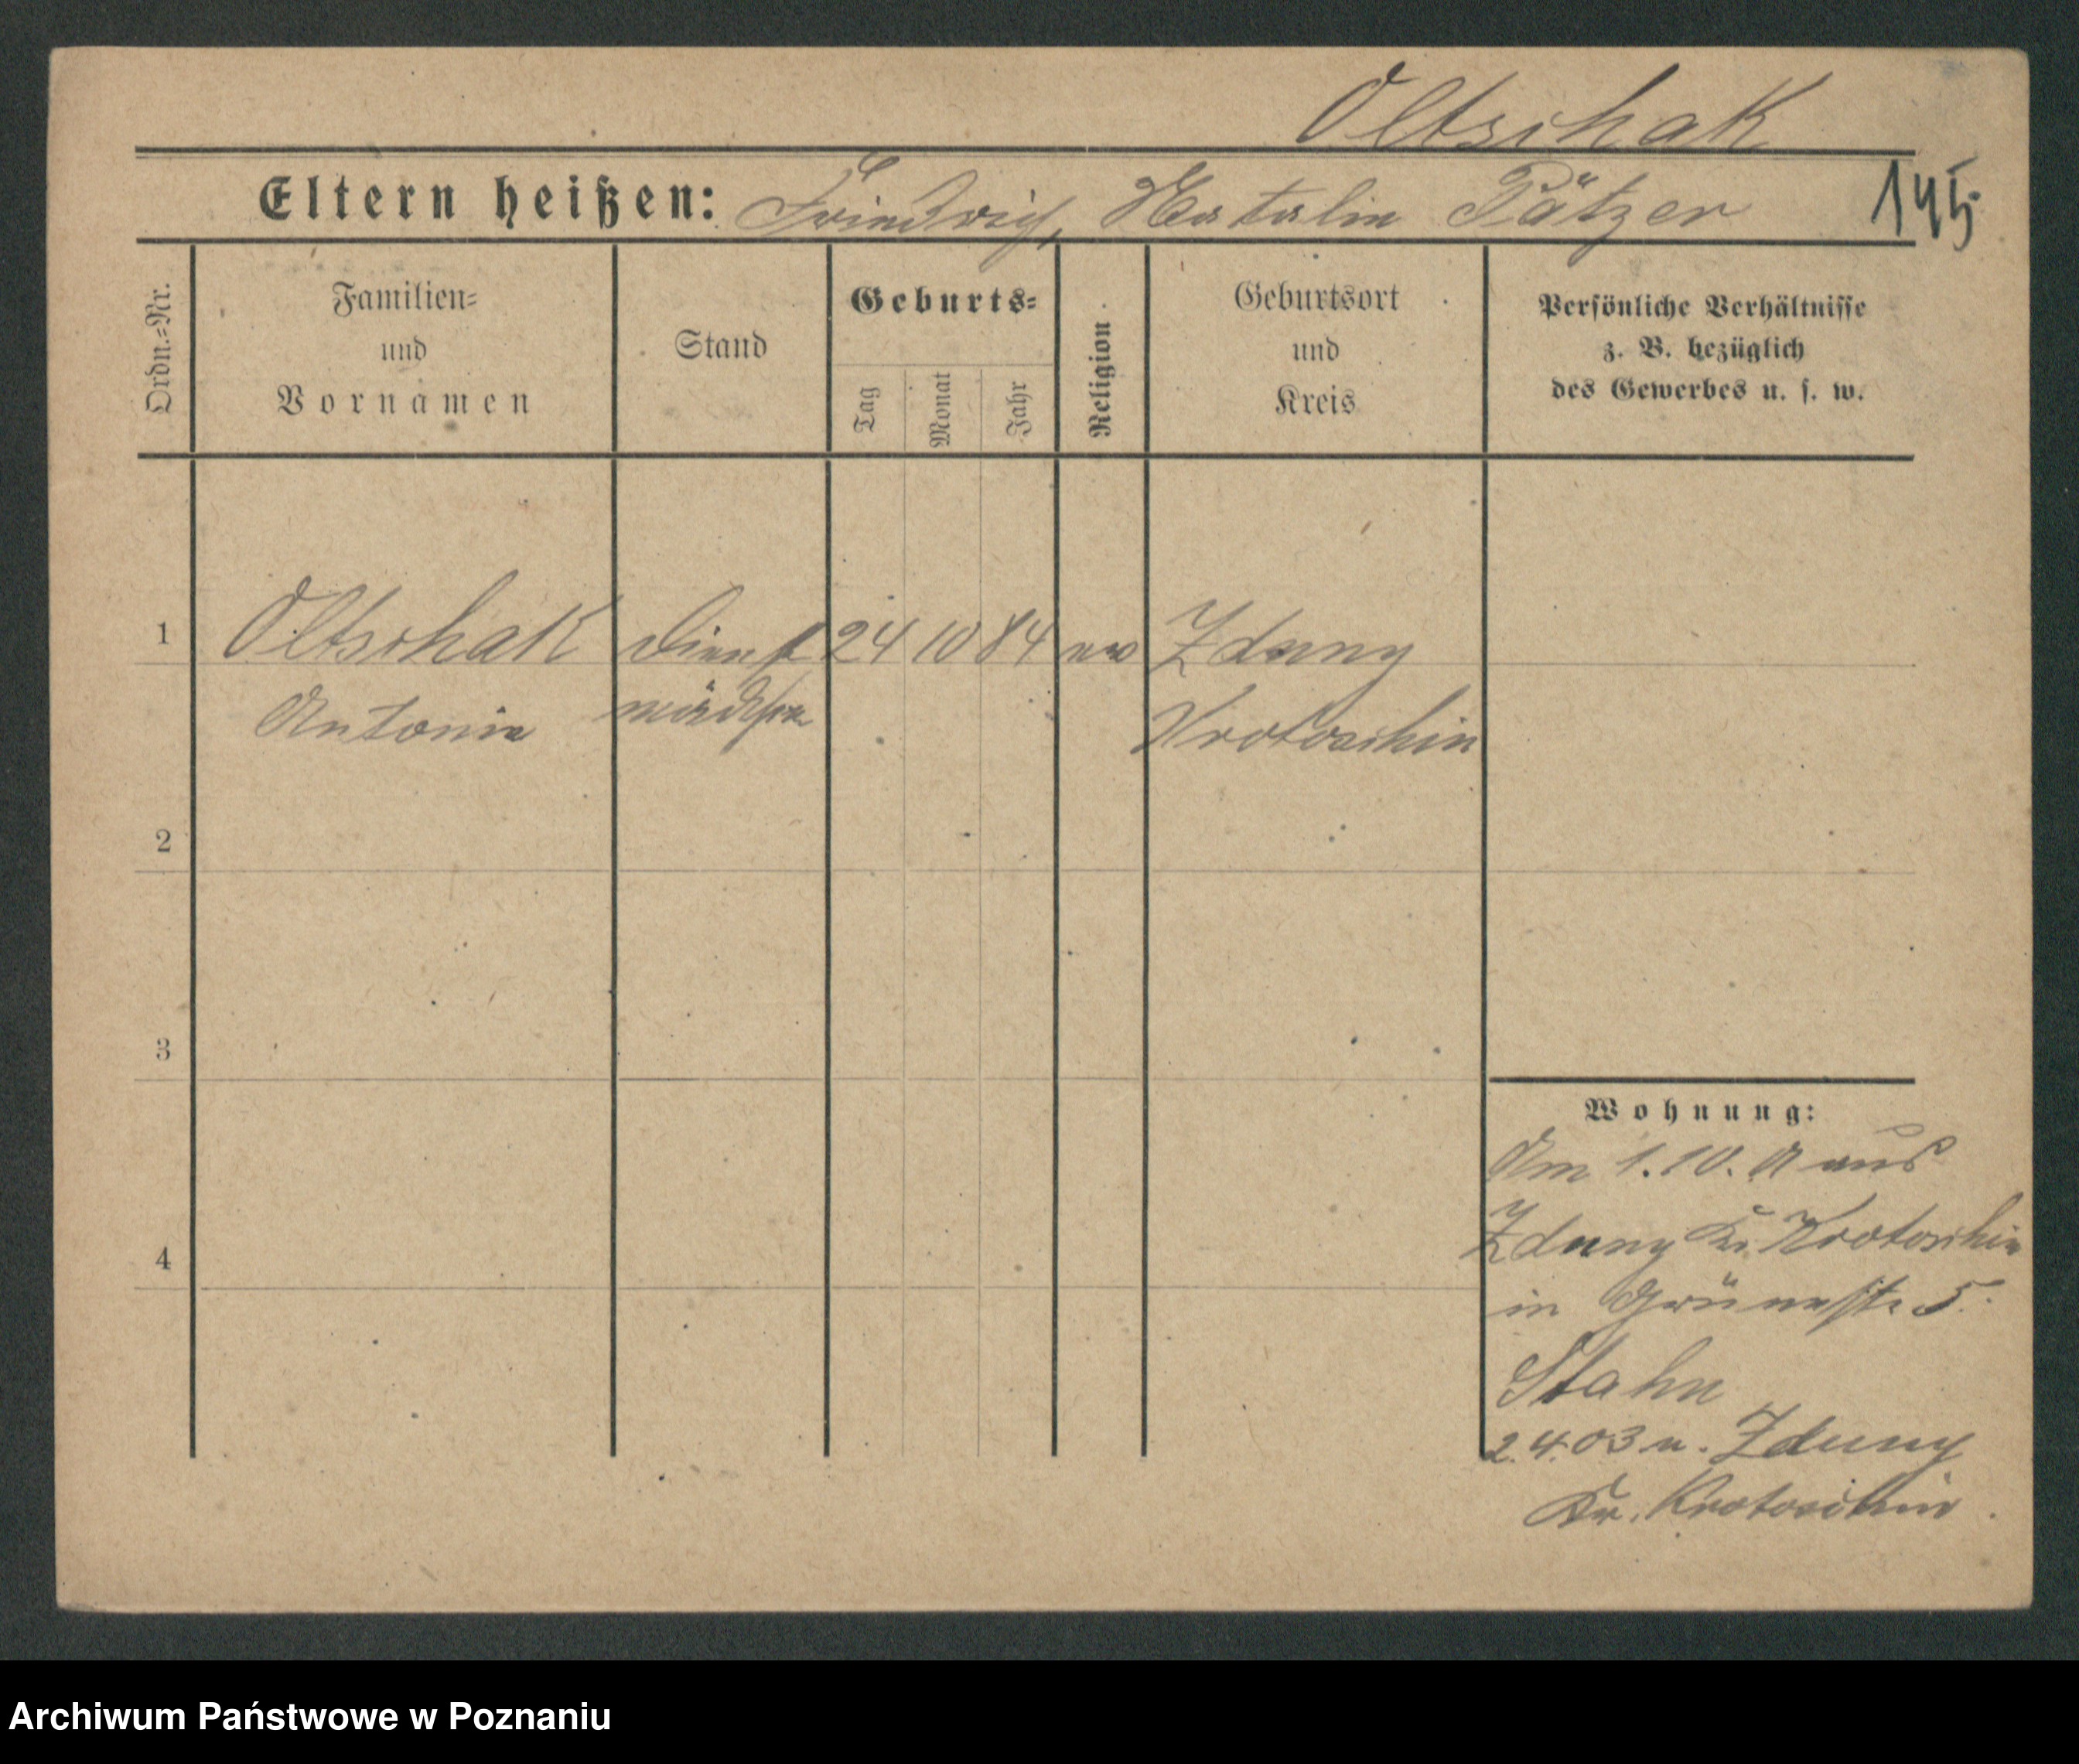 Oltschak
Eltern heißen: Friedrich, Natalie Pätzer 145.
Ordn.=Nr.
Familien=
und
Vornamen
Stand
Geburts=
Tag
Monat
Jahr
Religion
Geburtsort
und
Kreis
Persönliche Verhältnisse
z. B. bezüglich
des Gewerbes u. s. w.
1 Oltschak Dienst 24 10 84 ev Zduny
Antonie mädchen Krotoschin
2
3
4
Wohnung:
Am 1.10. aus
Zduny Kr. Krotoschin
in Grünestr. 5.
Stahn
2.4.03 n. Zduny
Kr. Krotoschin.
Archiwum Państwowe w Poznaniu